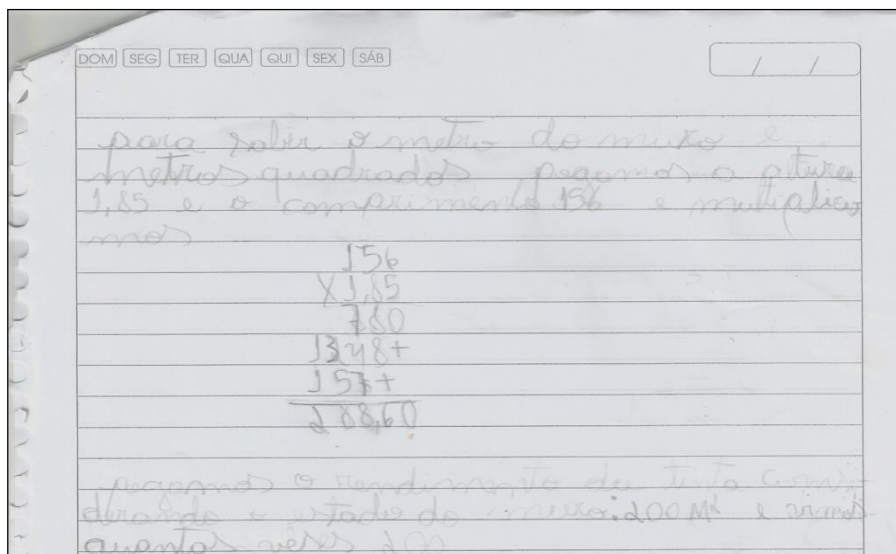 DOM SEG TER QUA QUI SEX SÁB / /
para saber o metro do muro e
metros quadrados pegamos a altura
1,85 e o comprimento 156 e multiplica
mos
156
X1,85
780
1248+
157+
288,60
pegamos o rendimento da tinta consi
derando o estado do muro: 200 M² e vemos
quantas vezes 200